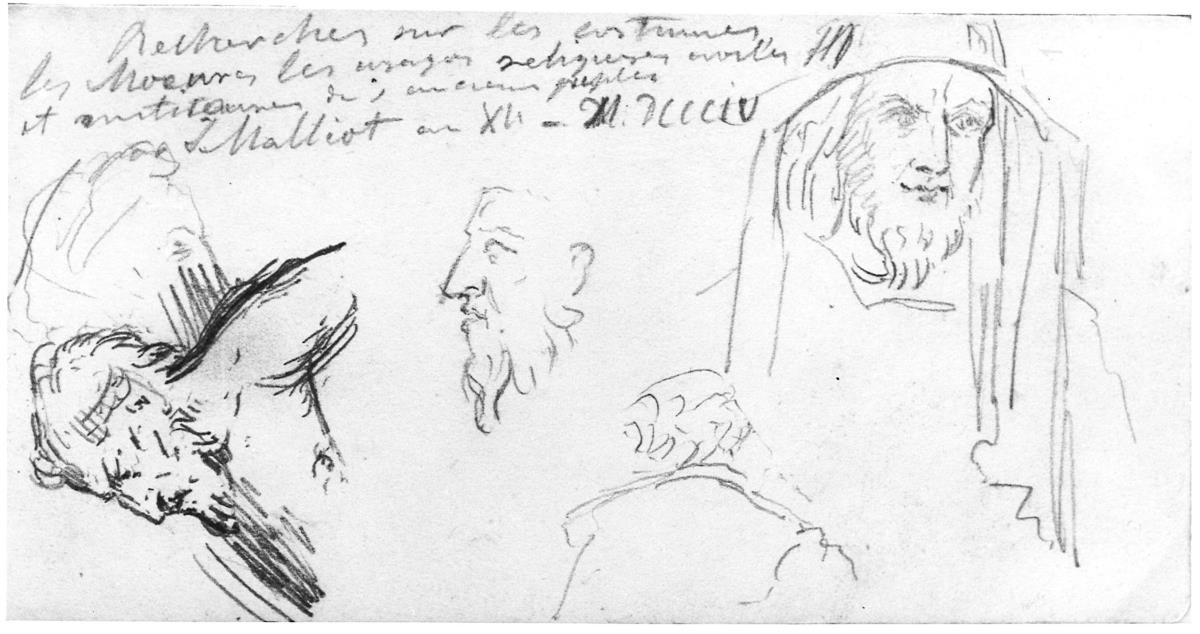 Recherches sur les costumes
les Moeurs les usages religieuses civiles
et militaires des anciens peuples
par J Malliot an XII - M.DCCCIV